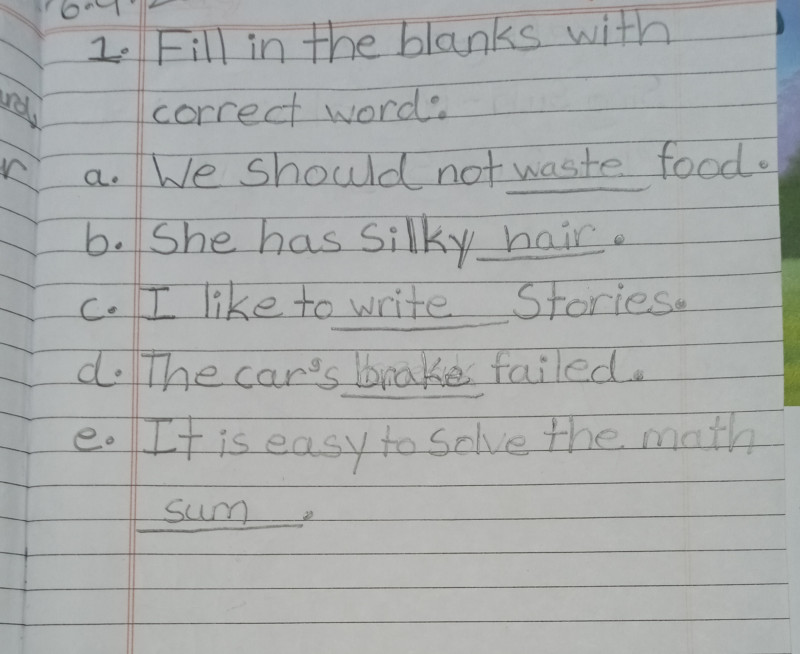 1. Fill in the blanks with
correct word:
a. We should not waste food.
b. She has silky hair.
c. I like to write Stories.
d. The car's brake failed.
e. It is easy to solve the math
sum.